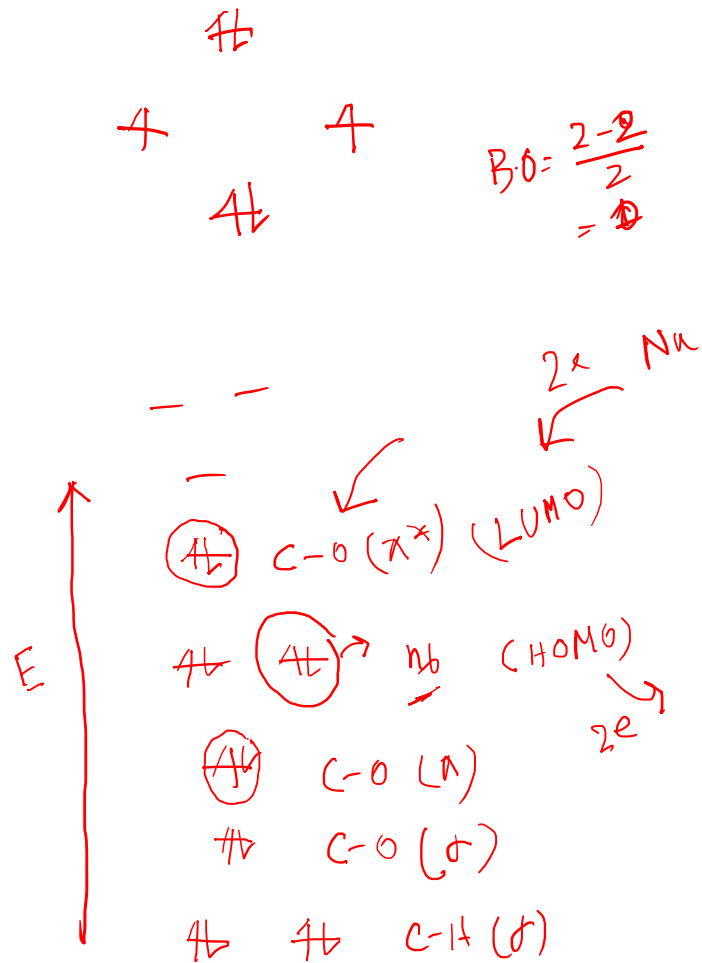 B.O = 2-2
2
= 0
2e Nu
C-O (π*) (LUMO)
E
nb (HOMO)
2e
C-O (π)
C-O (σ)
C-H (σ)